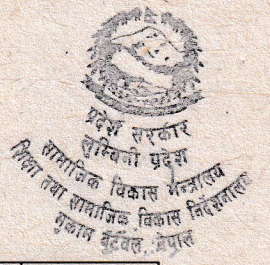 प्रदेश सरकार
लुम्बिनी प्रदेश
सामाजिक विकास मन्त्रालय
शिक्षा तथा सामाजिक विकास निर्देशनालय
मुकाम बुटवल, नेपाल